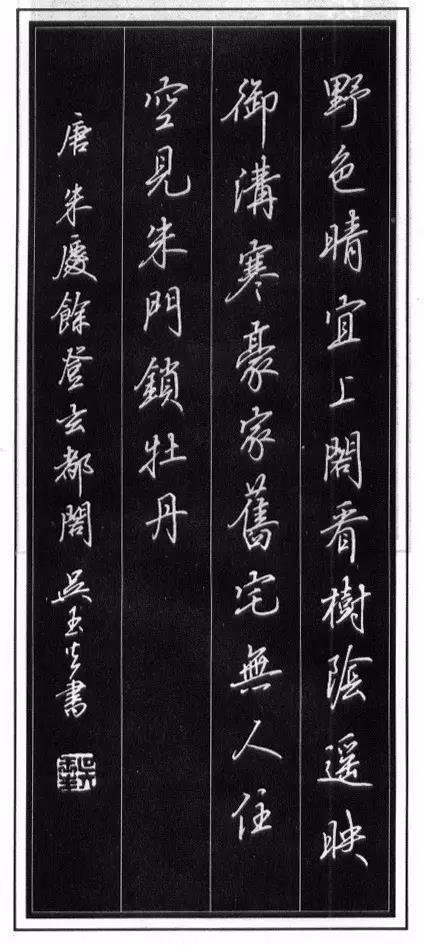 野色晴宜上閣看樹陰遥映
御溝寒豪家舊宅無人住
空見朱門鎖牡丹
唐朱慶餘登玄都閣 吳玉生書